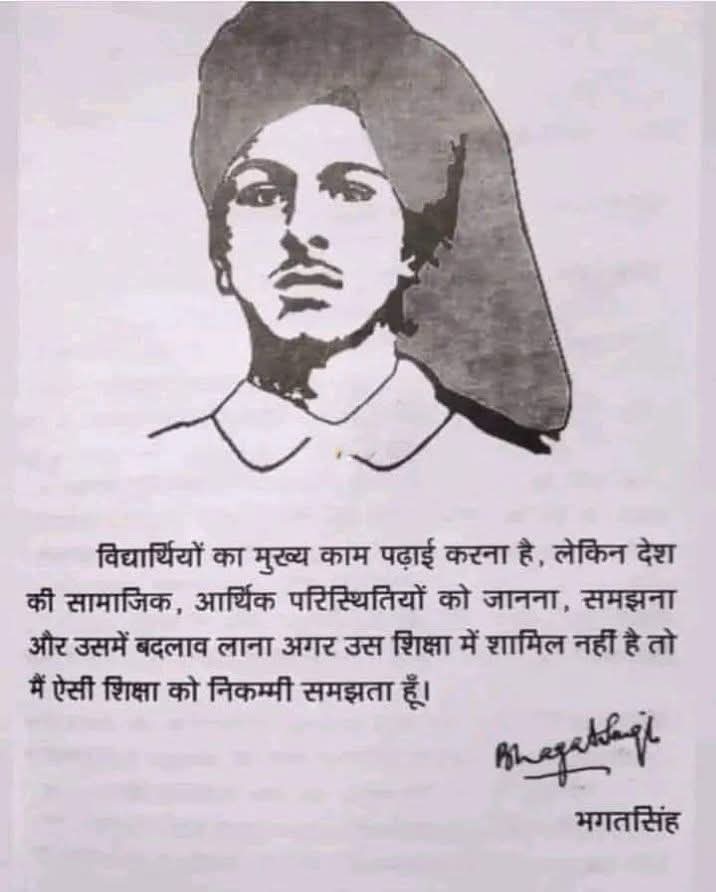 विद्यार्थियों का मुख्य काम पढ़ाई करना है, लेकिन देश
की सामाजिक, आर्थिक परिस्थितियों को जानना, समझना
और उसमें बदलाव लाना अगर उस शिक्षा में शामिल नहीं है तो
मैं ऐसी शिक्षा को निकम्मी समझता हूँ।
Bhagat Singh
भगतसिंह